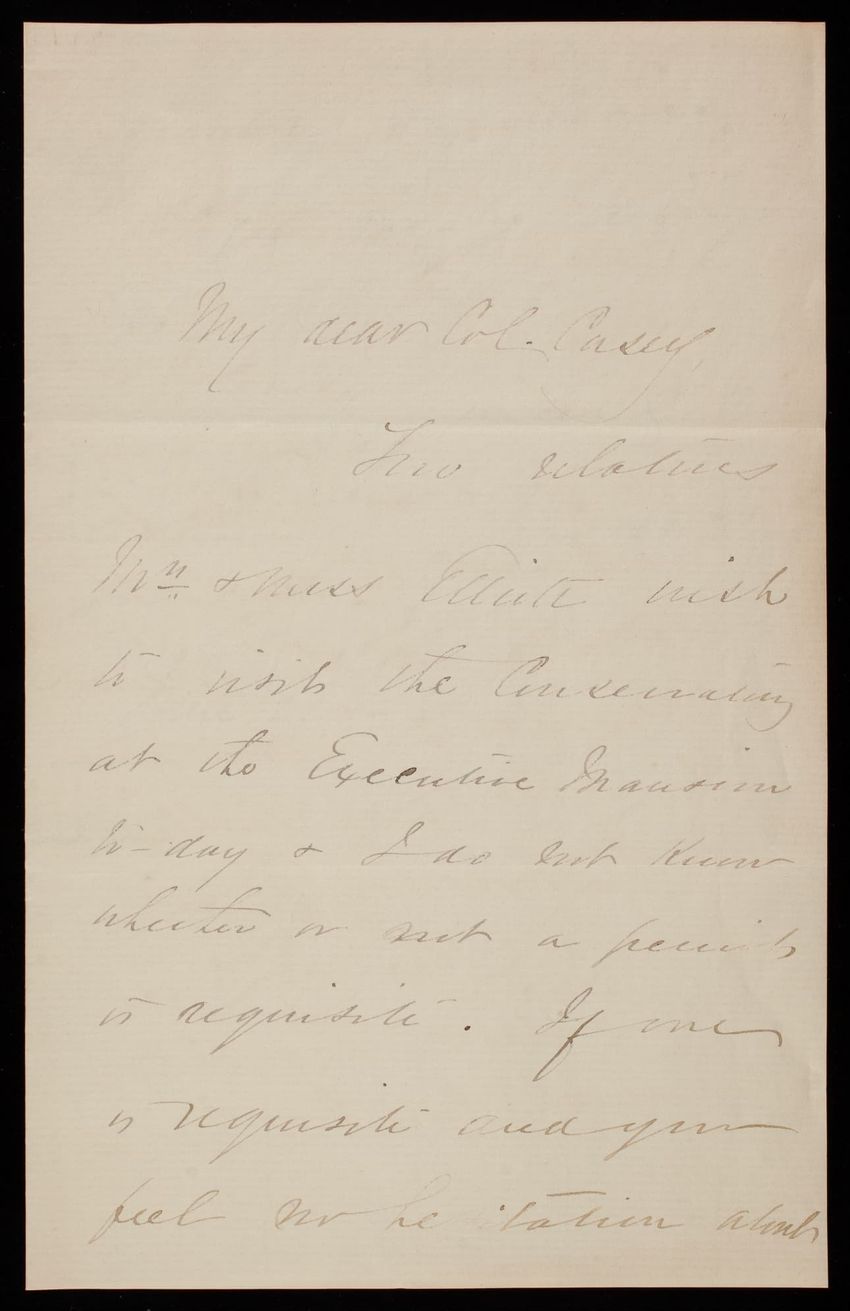 My dear Col. Casey,
Two relatives
Mrs & Miss Elliott wish
to visit the Conservatory
at the Executive Mansion
to-day & I do not know
whether or not a permit
is requisite. If one
is requisite and you
feel no hesitation about